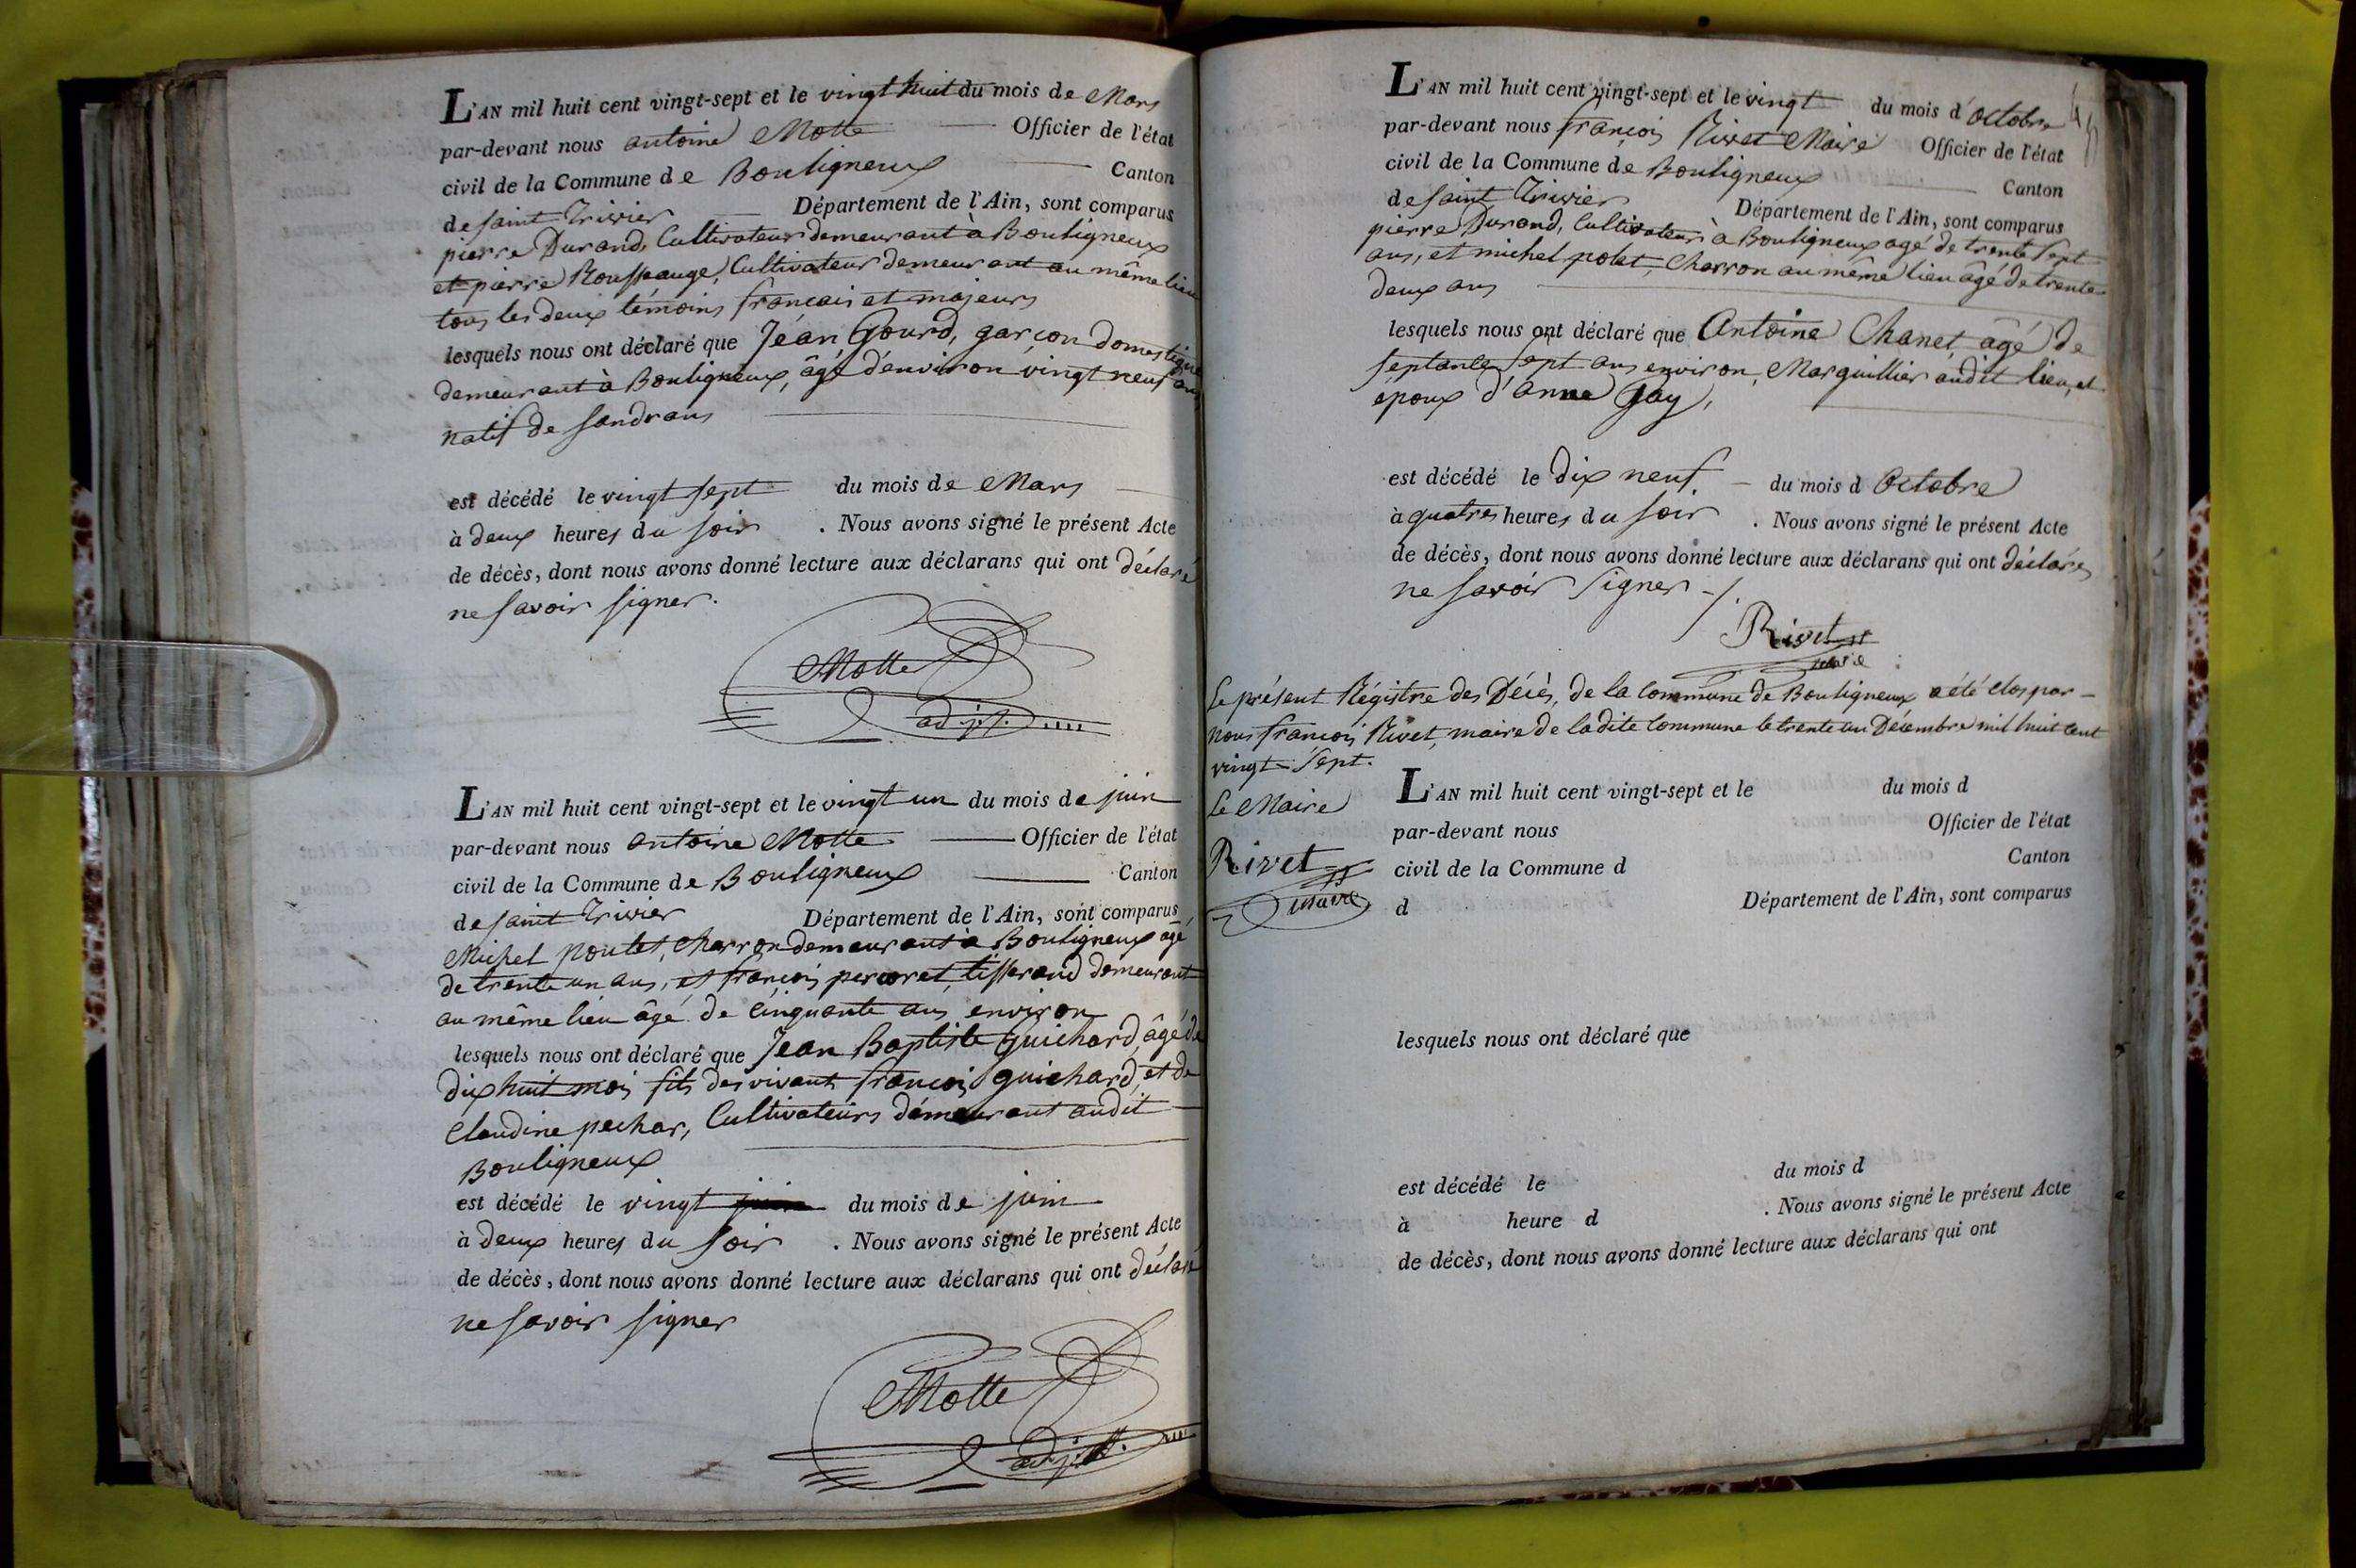 L'AN mil huit cent vingt-sept et le vingt huit du mois de Mars
par-devant nous antoine Motte Officier de l'état
civil de la Commune de Bouligneux Canton
de saint Trivier Département de l'Ain, sont comparus
pierre Durand, Cultivateur demeurant à Bouligneux
et pierre Cultivateur demeurant au même lieu
tous les deux témoins français et majeurs
lesquels nous ont déclaré que Jean Gourd, garçon domestique
demeurant à Bouligneux, âgé d'environ vingt neuf ans
natif de Sandrans
est décédé le vingt sept du mois de Mars
à deux heures du soir . Nous avons signé le présent Acte
de décès, dont nous avons donné lecture aux déclarans qui ont déclaré
ne savoir signer.
Motte
adj.t.
L'AN mil huit cent vingt-sept et le vingt un du mois de juin
par-devant nous antoine Motte Officier de l'état
civil de la Commune de Bouligneux Canton
de saint Trivier Département de l'Ain, sont comparus
Michel poulet, charron demeurant à Bouligneux agé
de trente un ans, et françois percoret, tisserand demeurant
au même lieu âgé de cinquante ans environ
lesquels nous ont déclaré que Jean Baptiste Guichard, âgé de
dix huit mois fils des vivants françois guichard, et de
Claudine pechar, Cultivateurs démeurant audit
Bouligneux
est décédé le vingt juin du mois de juin
à deux heures du soir . Nous avons signé le présent Acte
de décès, dont nous avons donné lecture aux déclarans qui ont déclaré
ne savoir signer
Motte
adj.t.
L'AN mil huit cent vingt-sept et le vingt du mois d'octobre
par-devant nous françois Rivet Maire Officier de l'état
civil de la Commune de Bouligneux Canton
de saint Trivier Département de l'Ain, sont comparus
pierre Durand, Cultivateur à Bouligneux agé de trente sept
ans, et michel polet, charron au même lieu âgé de trente
deux ans
lesquels nous ont déclaré que Antoine Chanet, âgé de
septante sept ans environ, Marguillier audit lieu, et
époux d'anne Gay,
est décédé le dix neuf du mois d Octobre
à quatres heures du soir . Nous avons signé le présent Acte
de décès, dont nous avons donné lecture aux déclarans qui ont déclarés
ne savoir signer
Rivet
maire
Le présent Régistre des Décès, de la commune de Bouligneux a été clos par
nous françois Rivet, maire de la dite commune le trente un Décembre mil huit cent
vingt-sept.
Le Maire
Rivet
maire
L'AN mil huit cent vingt-sept et le du mois d
par-devant nous Officier de l'état
civil de la Commune d Canton
d Département de l'Ain, sont comparus
lesquels nous ont déclaré que
est décédé le du mois d
à heure d . Nous avons signé le présent Acte
de décès, dont nous avons donné lecture aux déclarans qui ont